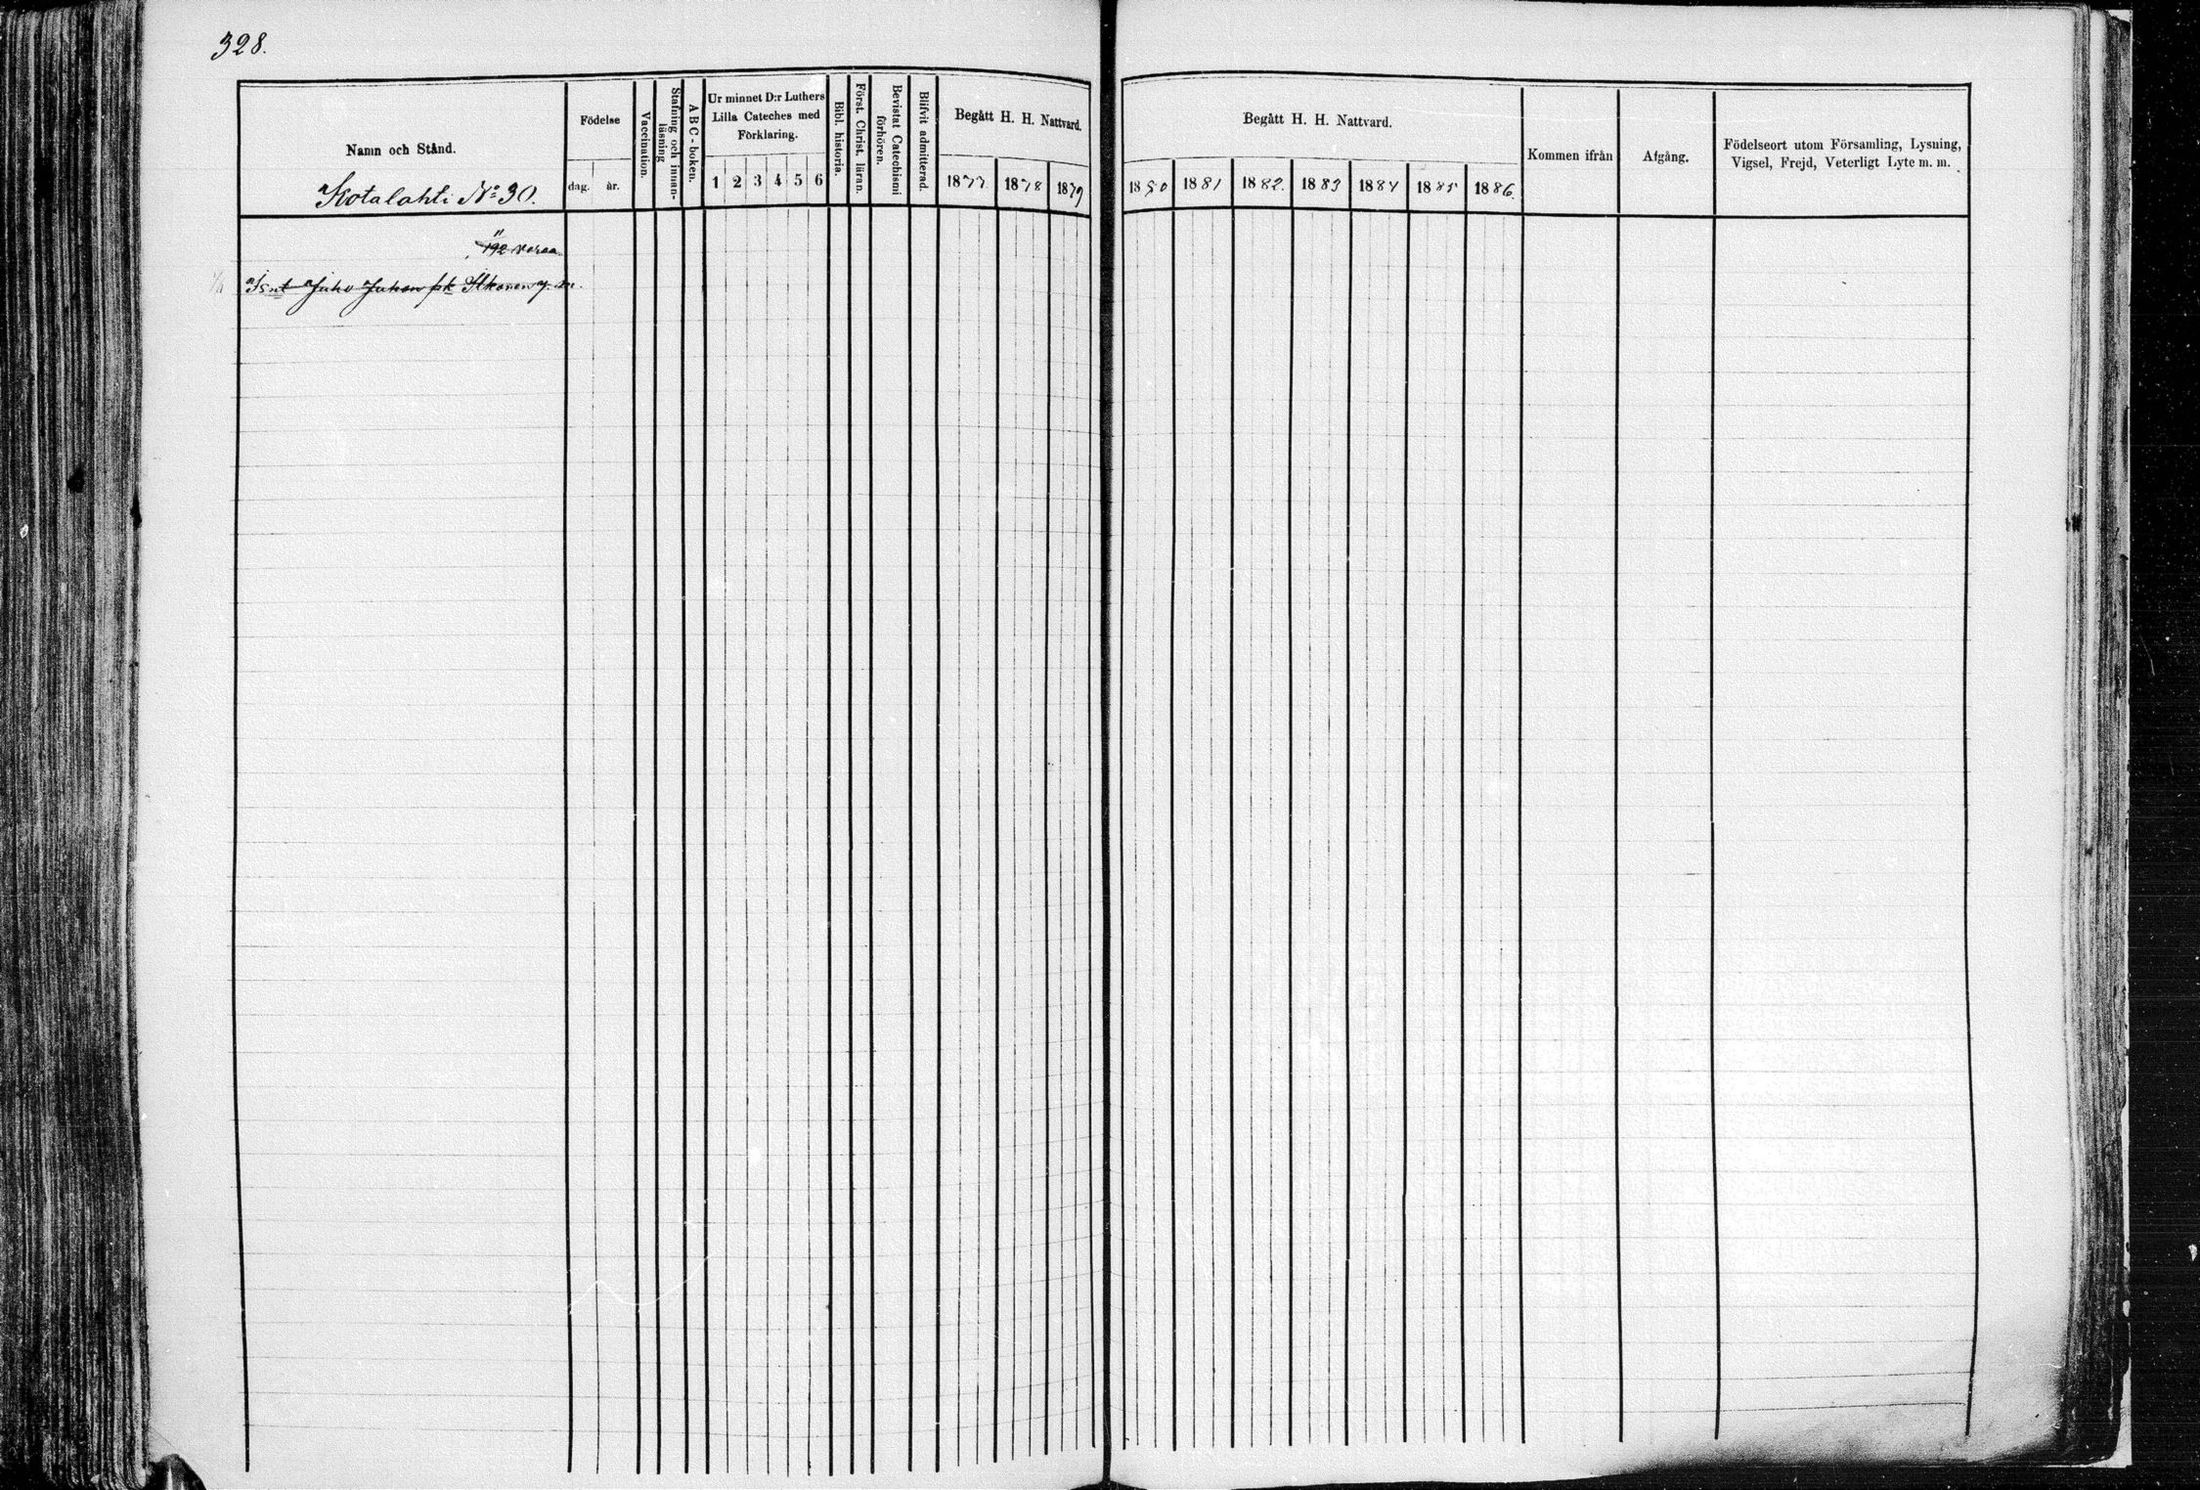 328.
Namn och Stånd.
Kotalahti No 30.
Födelse
dag. år.
Vaccination.
Stafning och innan-
läsning
A B C - boken.
Ur minnet D:r Luthers
Lilla Cateches med
Förklaring.
1 2 3 4 5 6
Bibl. historia.
Först. Christ. läran.
Bevistat Catechismi
förhören.
Blifvit admitterad.
Begått H. H. Nattvard.
1877 1878 1879
Begått H. H. Nattvard.
1880 1881 1882. 1883 1884 1885 1886.
Kommen ifrån
Afgång.
Födelseort utom Församling, Lysning,
Vigsel, Frejd, Veterligt Lyte m. m.
192
Isnt Juho Juhon pk Itkonen